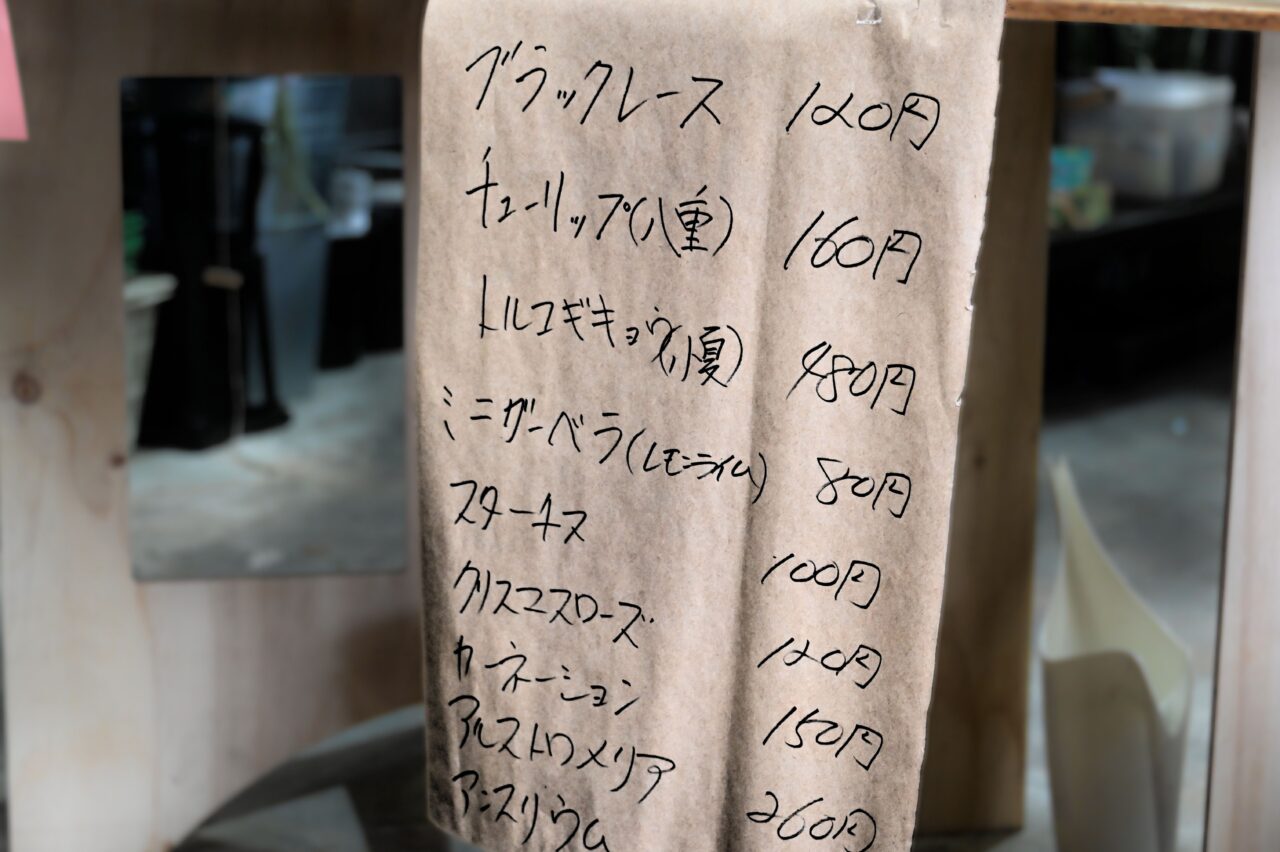 ブラックレース 120円
チューリップ(八重) 160円
トルコギキョウ(小夏) 480円
ミニガーベラ(レモンライム) 80円
スターチス 100円
クリスマスローズ 120円
カーネーション 150円
アルストロメリア 260円
アンスリウム